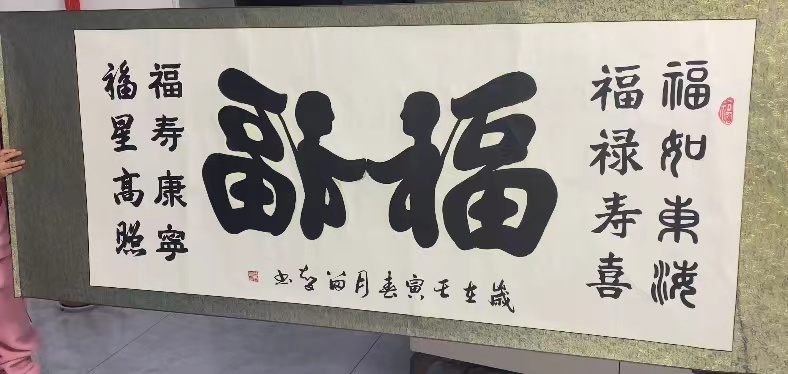 福如東海
福禄寿喜
福福
福寿康寧
福星高照
歲在壬寅春月